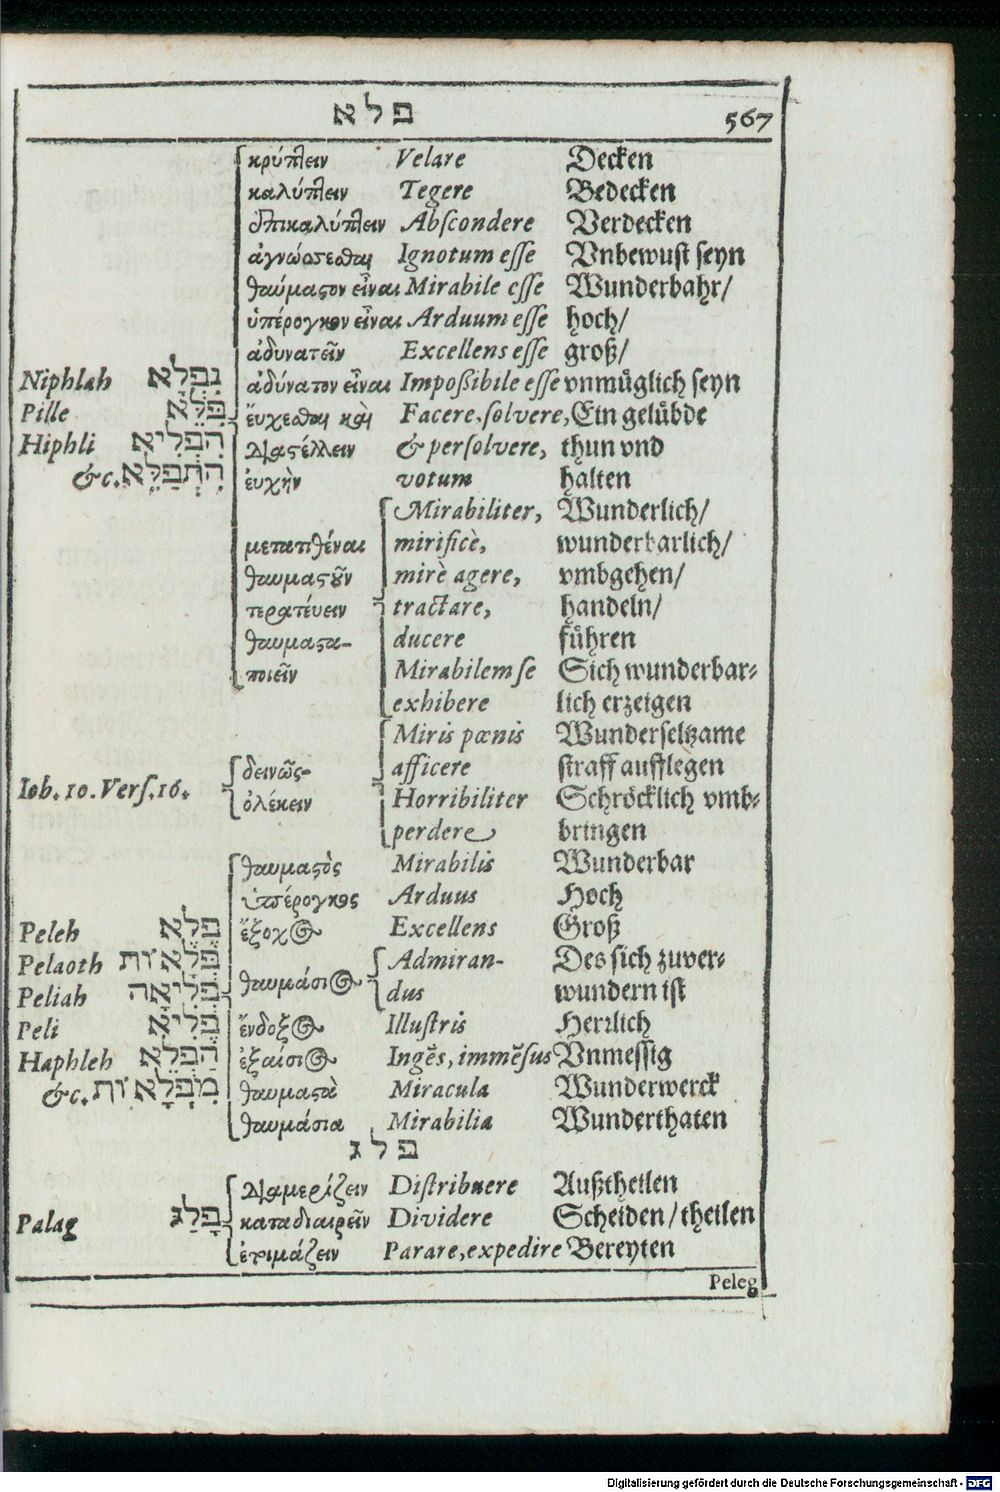 פלא 567
κρύπτειν Velare Decken
καλύπτειν Tegere Bedecken
ἐπικαλύπτειν Abscondere Verdecken
ἀγνώστεσθαι Ignotum esse Vnbewust seyn
θαύμαστον εἶναι Mirabile esse Wunderbahr/
ὑπέρογκον εἶναι Arduum esse hoch/
ἀδυνατεῖν Excellens esse groß/
Niphlah נִפְלָא ἀδύνατον εἶναι Impoßibile esse vnmüglich seyn
Pille פִּלֵּא ἔυχεσθαι καὶ Facere, solvere, Ein gelübde
Hiphli הִפְלִיא διαστέλλειν & persolvere, thun vnd
&c. הִתְפַּלֵּא ἐυχὴν votum halten
Mirabiliter, Wunderlich/
μετατιθέναι mirificè, wunderbarlich/
θαυμαστοῦν mirè agere, vmbgehen/
τερατέυειν tractare, handeln/
θαυμαστα- ducere führen
ποιεῖν Mirabilem se Sich wunderbar-
exhibere lich erzeigen
Miris pœnis Wunderseltzame
δεινῶς- afficere straff aufflegen
Iob. 10. Vers. 16. ὀλέκειν Horribiliter Schröcklich vmb-
perdere bringen
θαυμαστὸς Mirabilis Wunderbar
ὑπέρογκος Arduus Hoch
Peleh פֶּלֶא ἔξοχος Excellens Groß
Pelaoth פְּלָאוֹת Admiran- Des sich zuver-
Peliah פְּלִיאָה θαυμάσιος dus wundern ist
Peli פֶּלִיא ἔνδοξος Illustris Herrlich
Haphleh הַפְלֵא ἐξαίσιος Ingēs, immēsus Vnmessig
&c. מִפְלָאוֹת θαυμαστὰ Miracula Wunderwerck
θαυμάσια Mirabilia Wunderthaten
פלג
διαμερίζειν Distribuere Außtheilen
Palag פָּלַג καταδιαιρεῖν Dividere Scheiden/ theilen
ἑτιμάζειν Parare, expedire Bereyten
Peleg
Digitalisierung gefördert durch die Deutsche Forschungsgemeinschaft - DFG